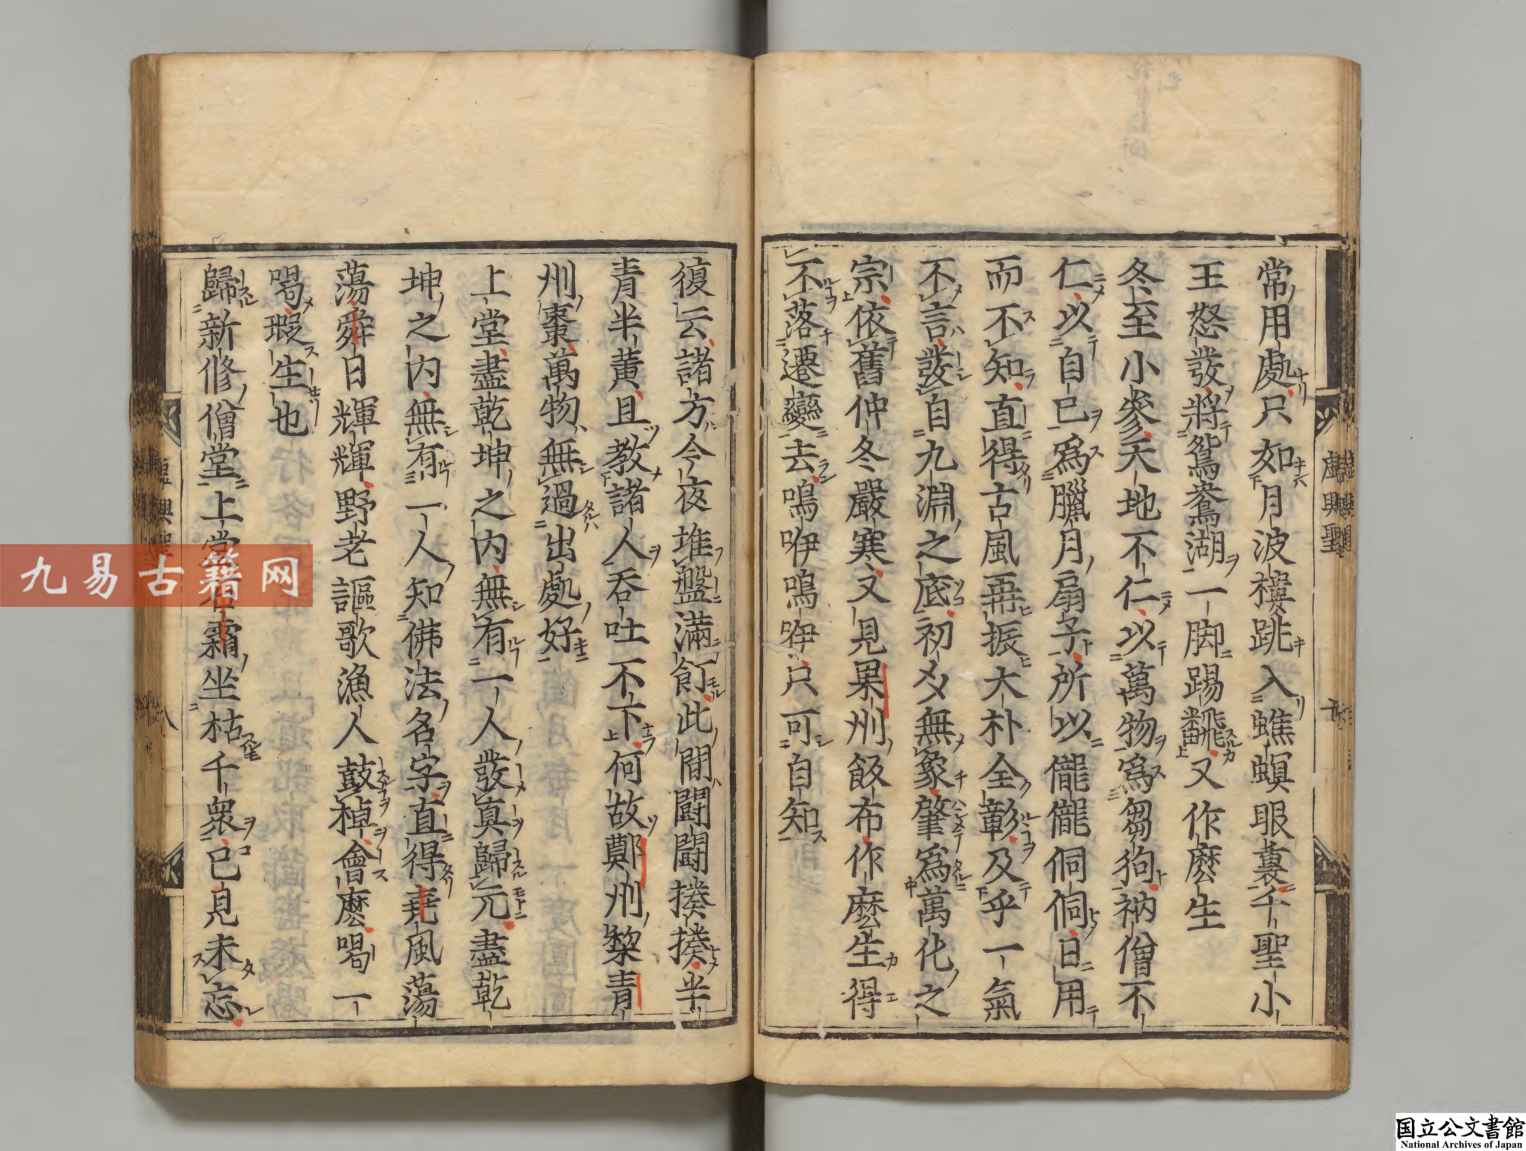 常用處只如月波樓跳入蟭螟眼裏千聖小
王怒發將鴛鴦湖一脚踢飜又作麽生
冬至小參天地不仁以萬物爲芻狗衲僧不
仁以自己爲臘月扇子所以儱儱侗侗日用
而不知直得古風再振大朴全彰及乎一氣
不言發自九淵之底初爻無象肇爲萬化之
宗依舊仲冬嚴寒又見果州飯布作麽生得
不落遷變去嗚咿嗚咿只可自知
復云諸方今夜堆盤滿飣此間鬪鬪揍揍半
青半黄且教諸人吞吐不下何故鄭州棃青
州棗萬物無過出處好
上堂盡乾坤之内無有一人發真歸元盡乾
坤之内無有一人知佛法名字直得堯風蕩
蕩舜日輝輝野老謳歌漁人鼓棹會麽喝一
喝瑕生也
歸新修僧堂上堂霜坐枯千衆已見未忘
虛興聖
八
九易古籍网
国立公文書館
National Archives of Japan